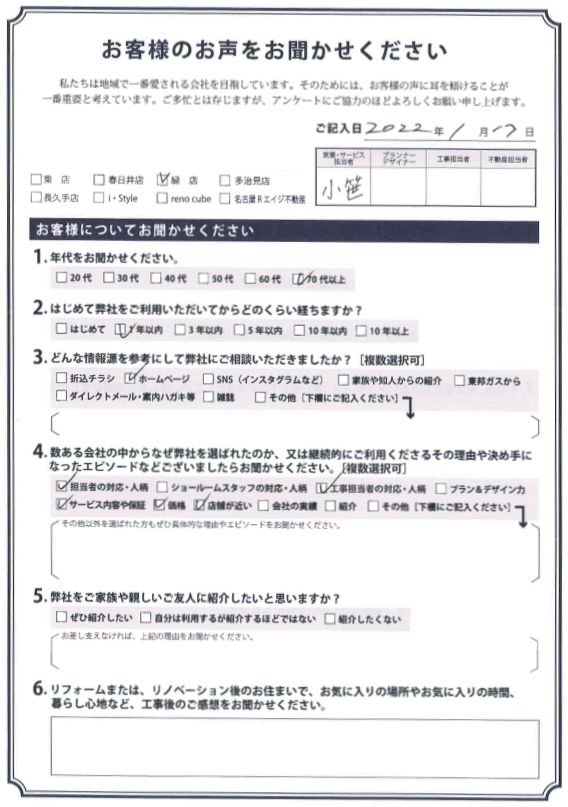 お客様のお声をお聞かせください
私たちは地域で一番愛される会社を目指しています。そのためには、お客様の声に耳を傾けることが
一番重要と考えています。ご多忙とは存じますが、アンケートにご協力のほどよろしくお願い申し上げます。
ご記入日 2022 年 1 月 17 日
営業・サービス担当者 プランナーデザイナー 工事担当者 不動産担当者
小笹
□東 店 □春日井店 ☑緑 店 □多治見店
□長久手店 □i・Style □reno cube □名古屋Rエイジ不動産
お客様についてお聞かせください
1. 年代をお聞かせください。
□20代 □30代 □40代 □50代 □60代 ☑70代以上
2. はじめて弊社をご利用いただいてからどのくらい経ちますか？
□はじめて ☑1年以内 □3年以内 □5年以内 □10年以内 □10年以上
3. どんな情報源を参考にして弊社にご相談いただきましたか？［複数選択可］
□折込チラシ ☑ホームページ □SNS（インスタグラムなど） □家族や知人からの紹介 □東邦ガスから
□ダイレクトメール・案内ハガキ等 □雑誌 □その他［下欄にご記入ください］
4. 数ある会社の中からなぜ弊社を選ばれたのか、又は継続的にご利用くださるその理由や決め手に
なったエピソードなどございましたらお聞かせください。［複数選択可］
☑担当者の対応・人柄 □ショールームスタッフの対応・人柄 ☑工事担当者の対応・人柄 □プラン＆デザイン力
☑サービス内容や保証 ☑価格 ☑店舗が近い □会社の実績 □紹介 □その他［下欄にご記入ください］
その他以外を選ばれた方もぜひ具体的な理由やエピソードをお聞かせください。
5. 弊社をご家族や親しいご友人に紹介したいと思いますか？
□ぜひ紹介したい □自分は利用するが紹介するほどではない □紹介したくない
お差し支えなければ、上記の理由をお聞かせください。
6. リフォームまたは、リノベーション後のお住まいで、お気に入りの場所やお気に入りの時間、
暮らし心地など、工事後のご感想をお聞かせください。